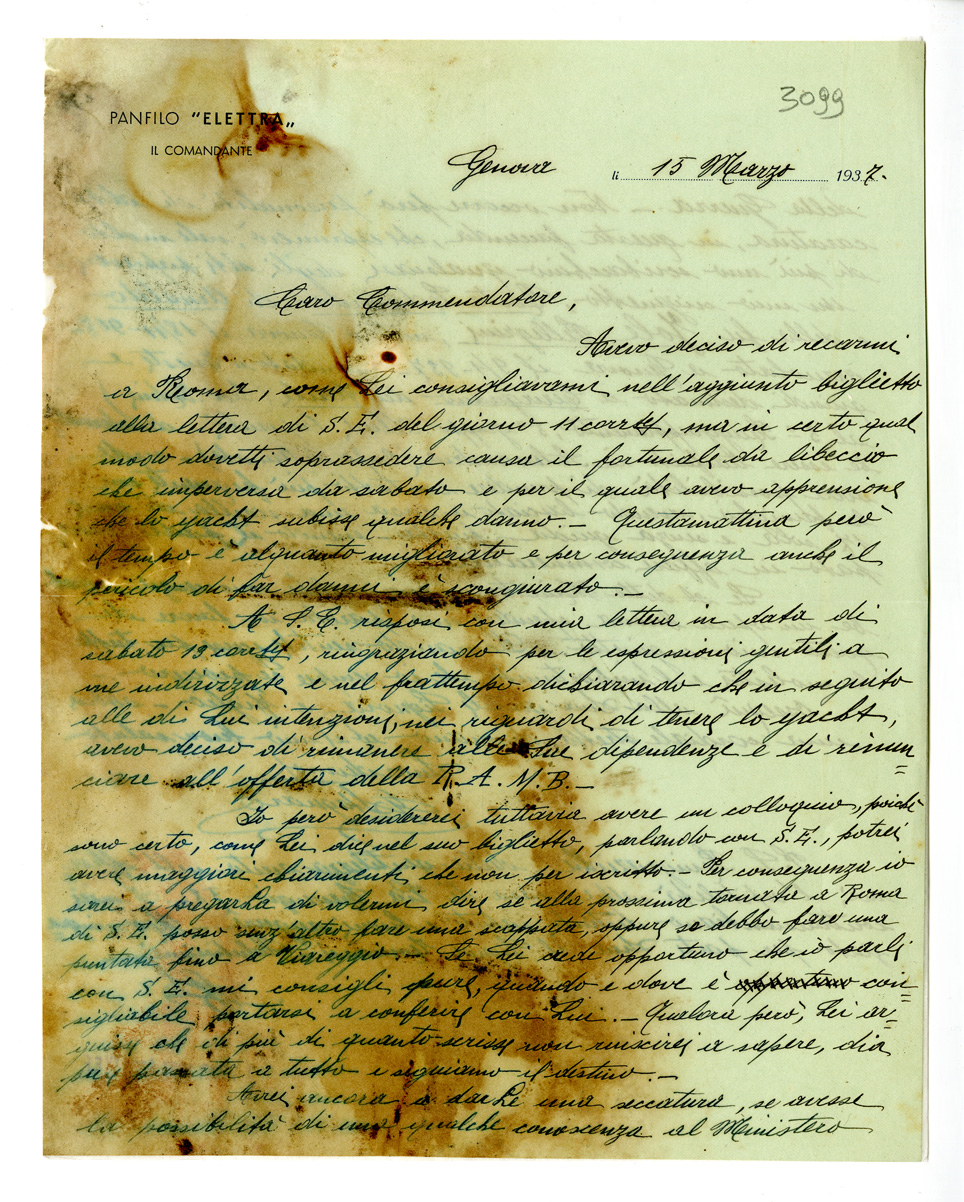 3099
PANFILO "ELETTRA„
IL COMANDANTE
Genova li 15 Marzo 1937.
Caro Commendatore,
Avevo deciso di recarmi
a Roma, come Lei consigliavami nell'aggiunto biglietto
alla lettera di S.E. del giorno 11 corr, ma in certo qual
modo dovetti soprassedere causa il fortunale da libeccio
che imperversa da sabato e per il quale avevo apprensione
che lo yacht subisse qualche danno. — Questamattina però
il tempo è alquanto migliorato e per conseguenza anche il
pericolo di far danni è scongiurato. —
A S.E. risposi con mia lettera in data di
sabato 13 corr, ringraziando per le espressioni gentili a
me indirizzate e nel frattempo dichiarando che in seguito
alle di Lui intenzioni, nei riguardi di tenere lo yacht,
avevo deciso di rimanere alle Sue dipendenze e di rinun=
ciare all'offerta della R.A.M.B. —
Io però desidererei tuttavia avere un colloquio, poichè
sono certo, come Lei dice nel suo biglietto, parlando con S.E., potrei
avere maggiori chiarimenti che non per iscritto. — Per conseguenza io
sarei a pregarLa di volermi dire se alla prossima tornata a Roma
di S.E. posso senz'altro fare una scappata, oppure se debbo fare una
puntata fino a Viareggio. — Se Lei crede opportuno che io parli
con S.E. mi consigli pure, quando e dove è opportuno con=
sigliabile portarsi a conferire con Lui. — Qualora però, Lei ar=
guisse che di più di quanto scrisse non riuscirei a sapere, dia
pure passata a tutto e seguiamo il destino. —
Avrei ancora a darLe una seccatura, se avesse
la possibilità di una qualche conoscenza al Ministero